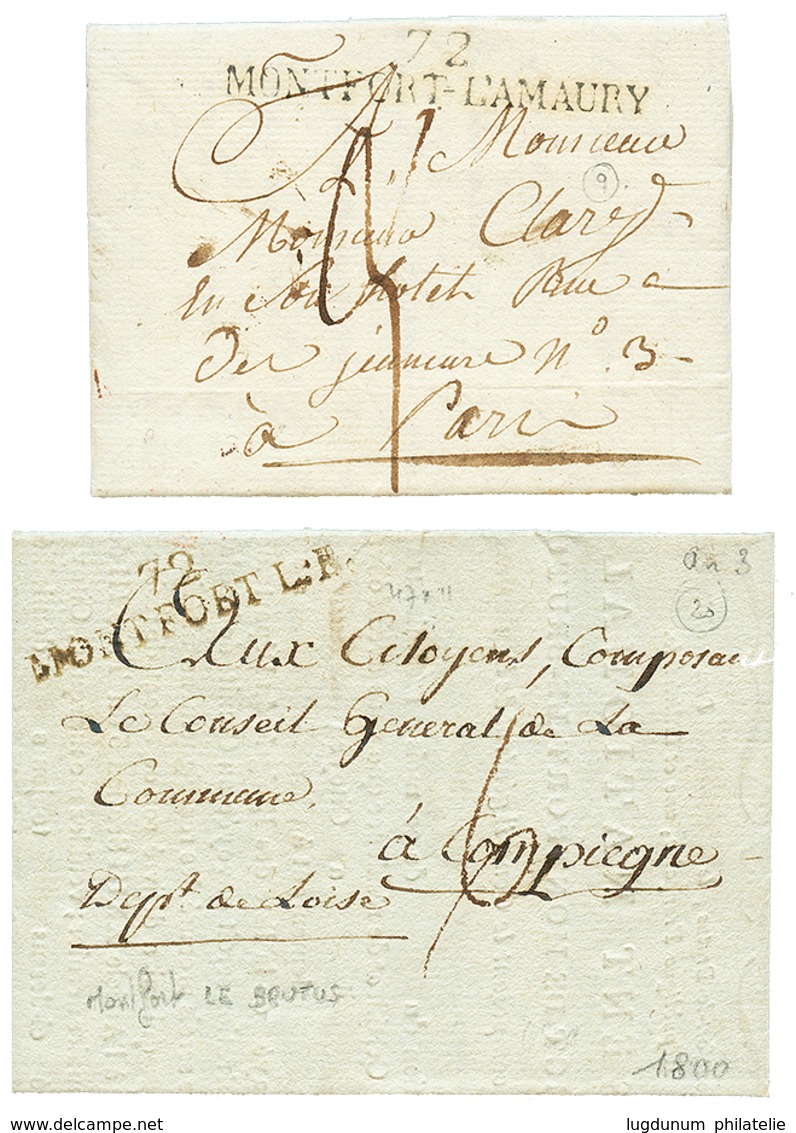 72
MONTFORT-L'AMAURY
A, Monsieur
9
Monsieur Claret
En Son hotel Rue
Des jeuneurs n° 3
à Paris
72
MONTFORT L:B.
An 3
20
Aux Citoyens, Composant
Le Conseil General de La
Commune.
à Compiegne
Dept de Loise
Montfort LE BRUTUS
1800
lugdunum philatelie